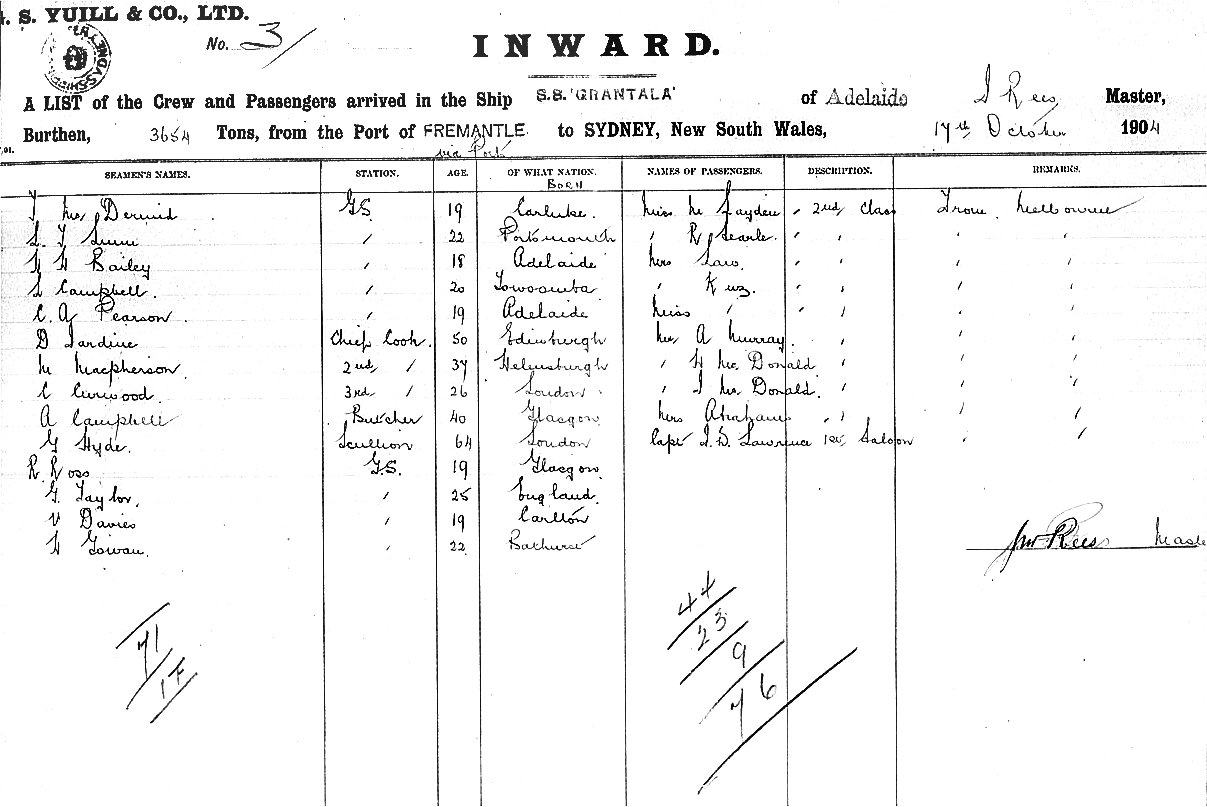 . S. YUILL & CO., LTD.
No. 3/
INWARD.
A LIST of the Crew and Passengers arrived in the Ship S.S. 'GRANTALA' of Adelaide J Rees Master,
Burthen, 3654 Tons, from the Port of FREMANTLE to SYDNEY, New South Wales, 17th October 1904
via Ports
SEAMEN'S NAMES. STATION. AGE. OF WHAT NATION. NAMES OF PASSENGERS. DESCRIPTION. REMARKS.
BORN
Mc Dermid G.S. 19 Carluke. Miss M Hayden " 2nd Class From Melbourne
" 22 Portsmouth " R Searle " " " "
Bailey " 18 Adelaide Mrs Law " " " "
Campbell. " 20 Towoomba " " " " "
C. A Pearson. " 19 Adelaide Miss " " " " "
D Jardine Chief Cook. 50 Edinburgh Mr A Murray. " " "
M Macpherson. 2nd " 37 Helensburgh " H Mc Donald " " "
C Curwood. 3rd " 26 London " J Mc Donald. " " "
A Campbell Butcher 40 Glasgow Mrs Abrahams " " " "
G Hyde. Scullion 64 London Capt J. D. Lawrence 1st Saloon " "
R. Ross G.S. 19 Glasgow
G. Taylor. " 25 England.
V Davies " 19 Carlton
H Gowan. " 22 Bathurst
Jno Rees Maste
71
17
44
23
9
76